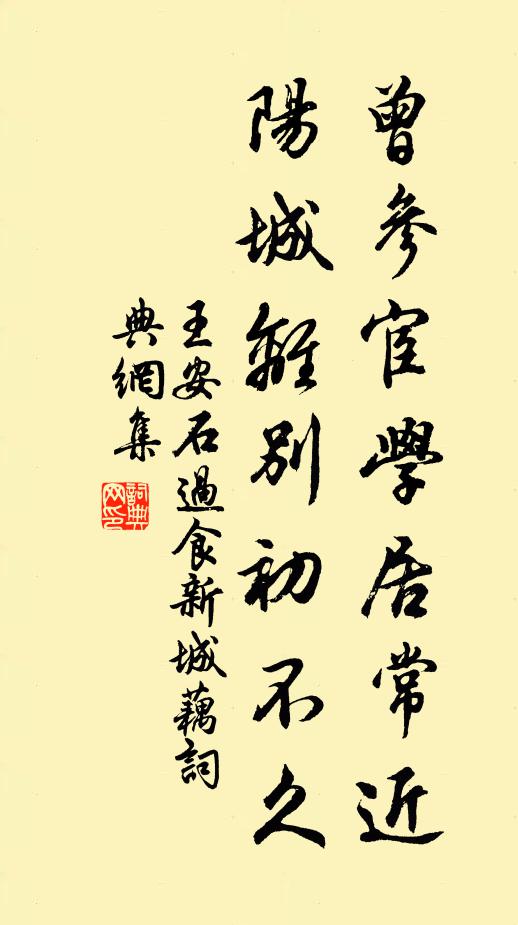 曾參宦學居常近
陽城離別初不久
王安石過食新城藕詞
典網集
詞典
网印